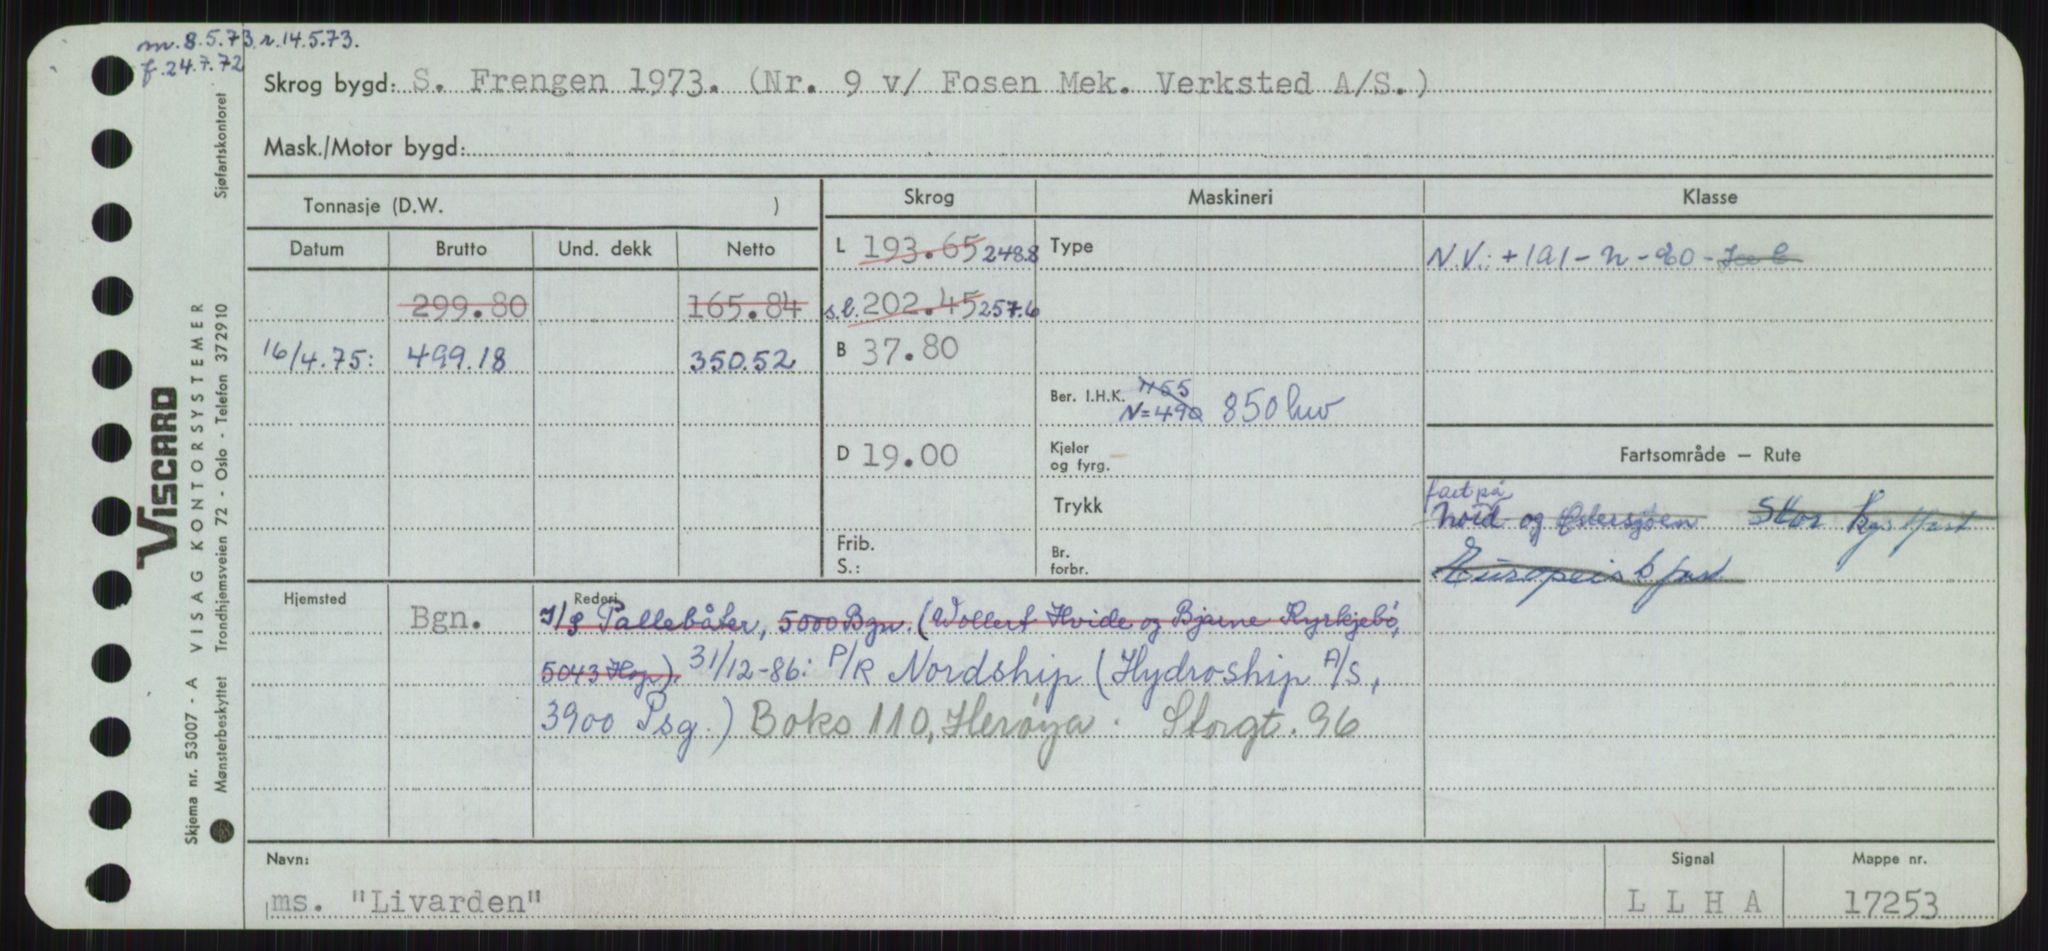 m. 8.5.73 r. 14.5.73.
f. 24.7.72
Skrog bygd: S. Frengen 1973. (Nr. 9 v/ Fosen Mek. Verksted A/S.)
Mask./Motor bygd:
Tonnasje (D.W. )
Skrog Maskineri Klasse
Datum Brutto Und. dekk Netto
L 193.65 248.8 Type N.V.: +1A1-n-80- Ice C
299.80 165.84 s.l. 202.45 257.6
16/4.75: 499.18 350.52 B 37.80
Ber. I.H.K. 1155 N=490 850 hw
D 19.00 Kjeler og fyrg.
Fartsområde — Rute
Trykk
fart på
Nord og Østersjøen Stor kystfart
Frib.
S.: Br. forbr.
Europeisk fart
Hjemsted Rederi
Bgn. I/S Pallebåter, 5000 Bgn. (Wollert Hvide og Bjarne Kyrkjebö,
5043 Hop). 31/12-86: P/R Nordship (Hydroship A/S,
3900 Psg.) Boks 110, Herøya. Storgt. 96
Navn: Signal Mappe nr.
ms. "Livarden" L L H A 17253
VISCARD
VISAG KONTORSYSTEMER
Skjema nr. 53007 - A
Mønsterbeskyttet Trondhjemsveien 72 - Oslo - Telefon 372910 Sjøfartskontoret